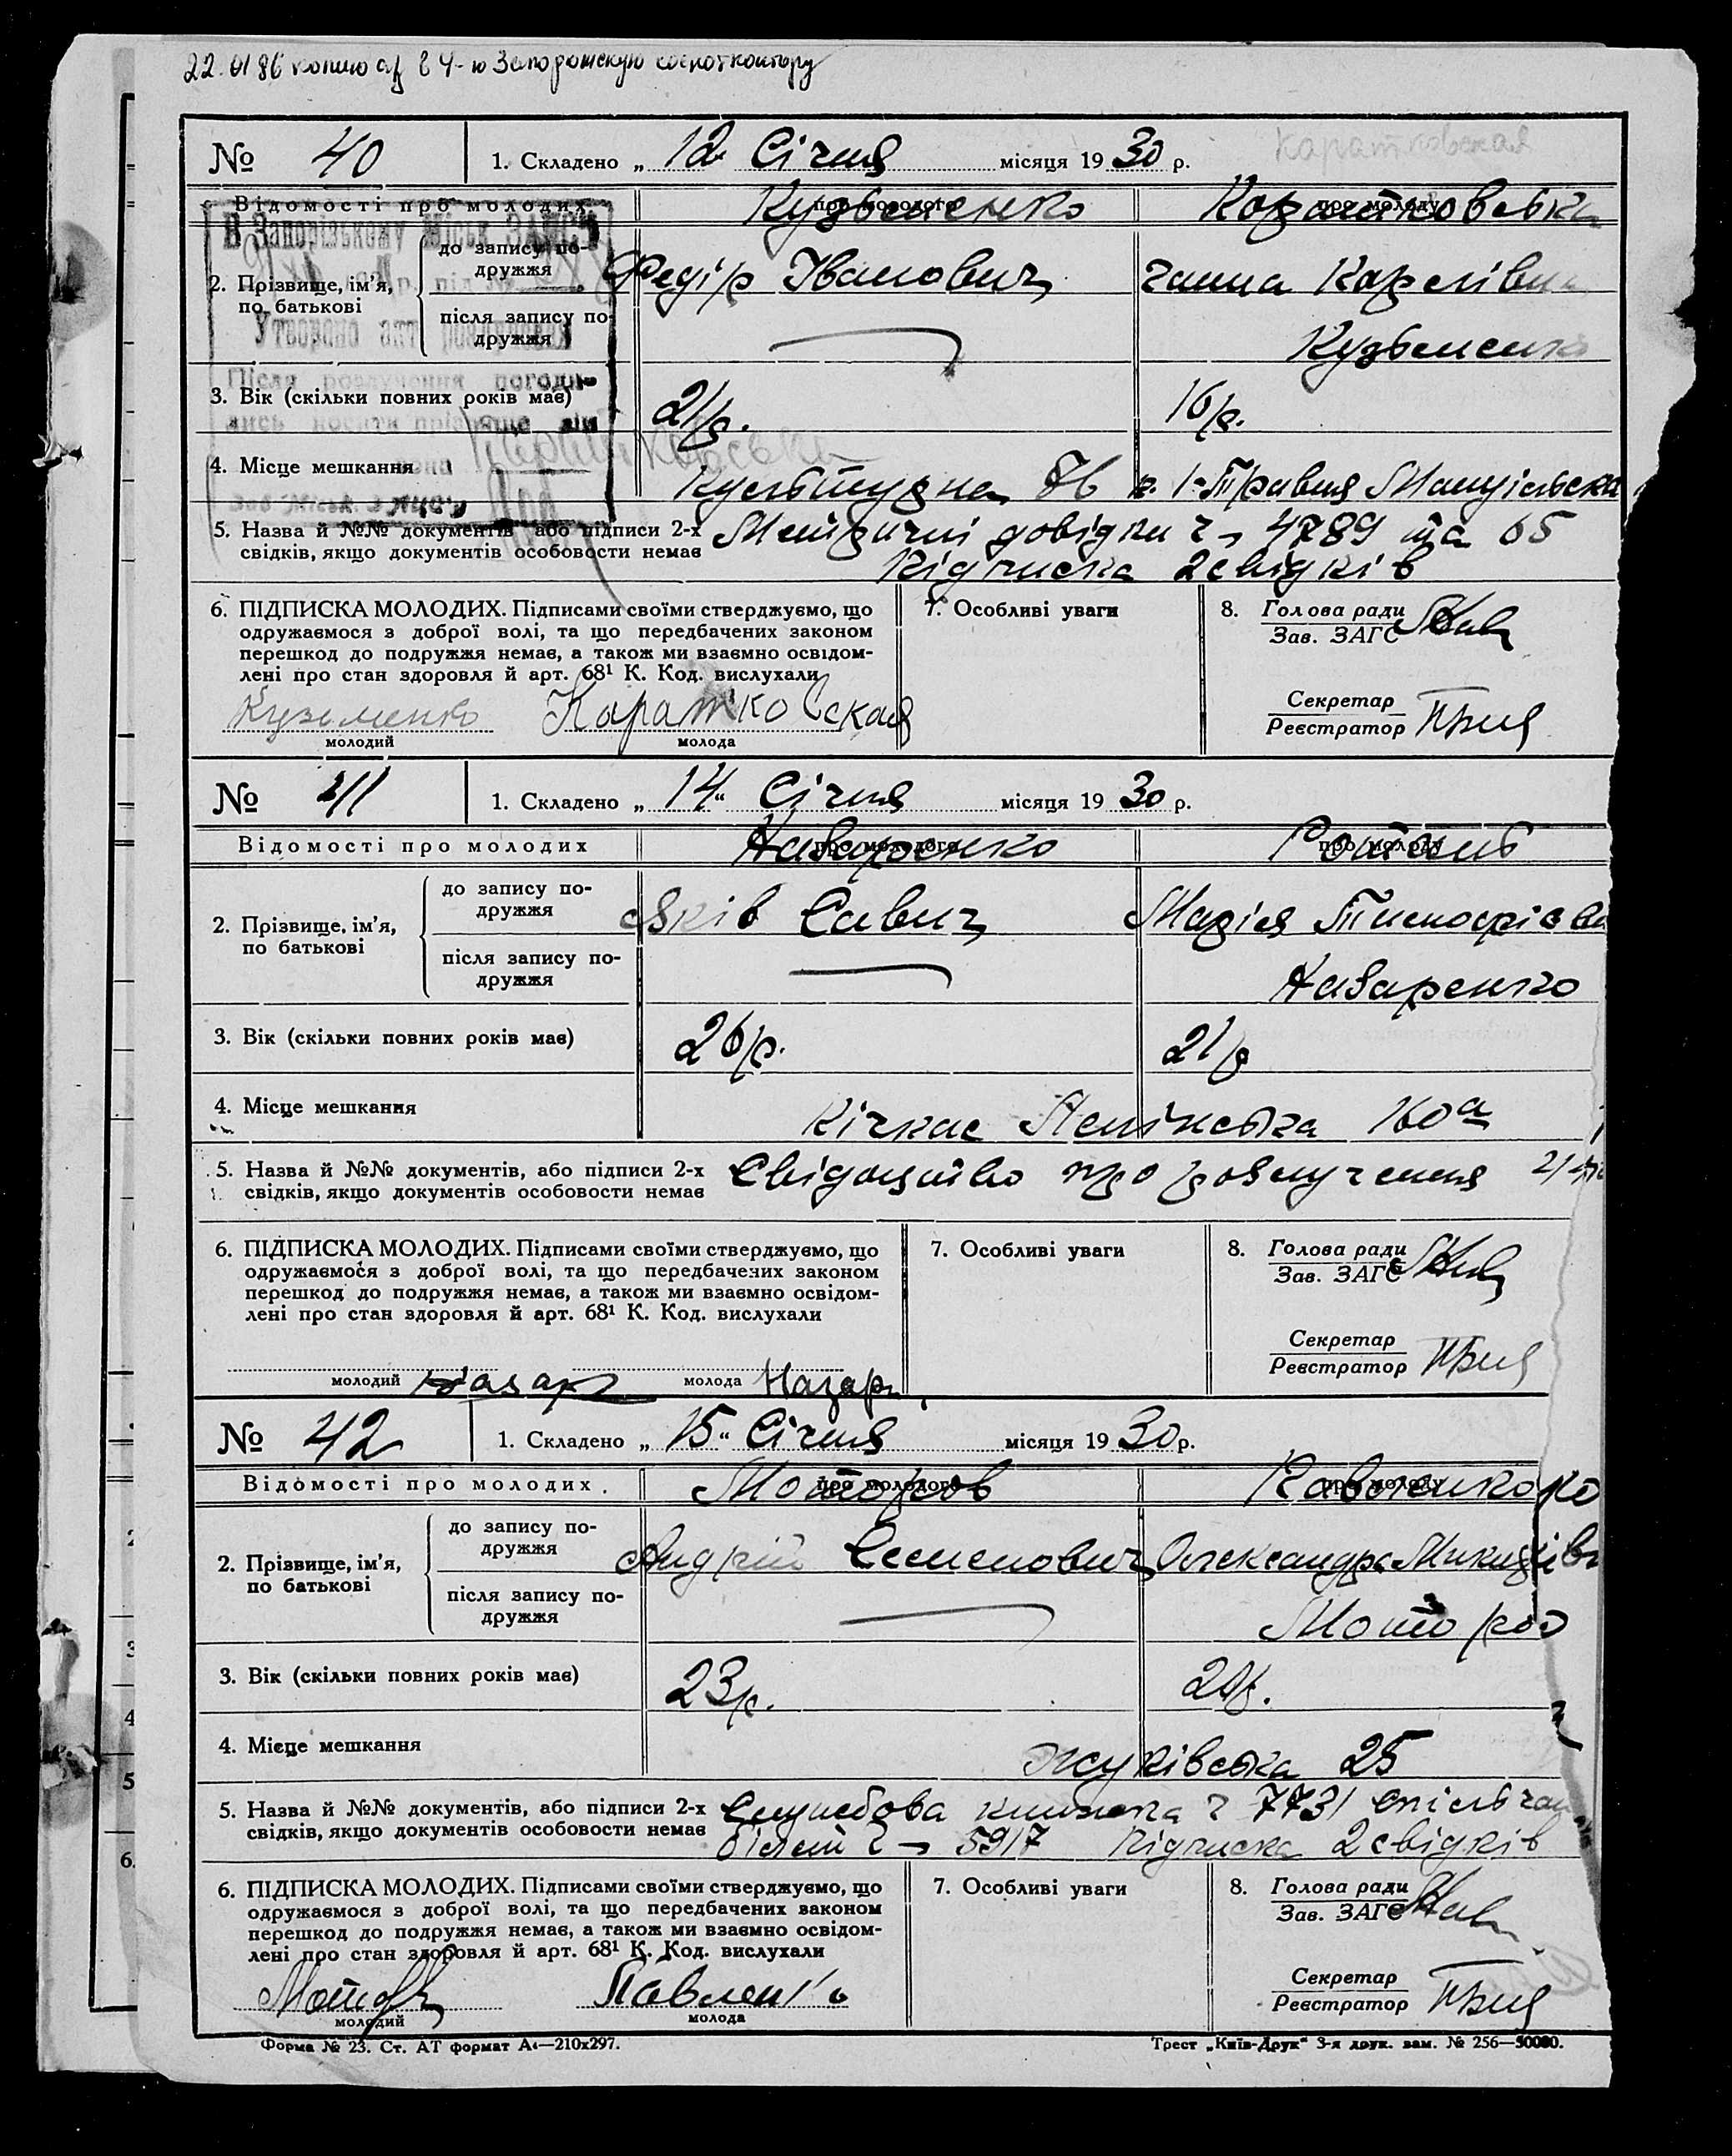 22.01.86 копию а/з в 4-ю Запорожскую госнотконтору
№ 40 1. Складено „ 12 Січня місяця 19 30 р. Каратковская
Відомості про молодих про молодого про молоду
Кузьменко Коратковська
В Запорізькому Міськ ЗАГСі
2. Прізвище, ім'я, по батькові
до запису подружжя Федір Іванович Ганна Карлівн
після запису подружжя Кузьменко
Утворено акт розлучення
Після розлучення погоди-
лись носити прізвище він
вона Каратковська
3. Вік (скільки повних років має) 21/р. 16/р.
4. Місце мешкання Культурна 76 1-Травня Мануільська
5. Назва й №№ документів або підписи 2-х Метричні довідки ч 4789 та 65
свідків, якщо документів особовости немає Підписка 2 свідків
6. ПІДПИСКА МОЛОДИХ. Підписами своїми стверджуємо, що
одружаємося з доброї волі, та що передбачених законом
перешкод до подружжя немає, а також ми взаємно освідом-
лені про стан здоровля й арт. 68¹ К. Код. вислухали
Кузьменко Каратковская
молодий молода
7. Особливі уваги
8. Голова ради
Зав. ЗАГС
Секретар
Реєстратор
№ 41 1. Складено „ 14 “ Січня місяця 19 30 р.
Відомості про молодих про молодого про молоду
Назаренко Ротань
2. Прізвище, ім'я, по батькові
до запису подружжя Яків Савич Марія Тимофієв
після запису подружжя Назаренко
3. Вік (скільки повних років має) 26/р. 21/р
4. Місце мешкання Кічкас Ленінська 160а
5. Назва й №№ документів, або підписи 2-х Свідоцтво про розлучення
свідків, якщо документів особовости немає
6. ПІДПИСКА МОЛОДИХ. Підписами своїми стверджуємо, що
одружаємося з доброї волі, та що передбачених законом
перешкод до подружжя немає, а також ми взаємно освідом-
лені про стан здоровля й арт. 68¹ К. Код. вислухали
молодий Назар молода Назар
7. Особливі уваги
8. Голова ради
Зав. ЗАГС
Секретар
Реєстратор
№ 42 1. Складено „ 15 “ Січня місяця 19 30 р.
Відомості про молодих про молодого про молоду
Моторов Павленко
2. Прізвище, ім'я, по батькові
до запису подружжя Андрій Семенович Олександра Микит
після запису подружжя
3. Вік (скільки повних років має) 23р.
4. Місце мешкання Жуківська 25
5. Назва й №№ документів, або підписи 2-х Службова книжка ч 7731 спільчан
свідків, якщо документів особовости немає білет ч 5917 Підписка 2 свідків
6. ПІДПИСКА МОЛОДИХ. Підписами своїми стверджуємо, що
одружаємося з доброї волі, та що передбачених законом
перешкод до подружжя немає, а також ми взаємно освідом-
лені про стан здоровля й арт. 68¹ К. Код. вислухали
Павленко
молодий молода
7. Особливі уваги
8. Голова ради
Зав. ЗАГС
Секретар
Реєстратор
Форма № 23. Ст. АТ формат А4—210х297. Трест „Київ-Друк“ 3-я друк. зам. № 256—50000.